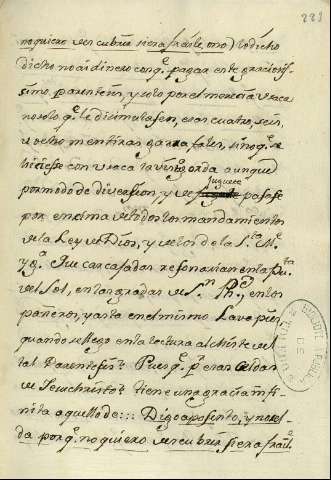 no quiero descubrir si era fraile, o no) lo dicho
dicho no ai dinero con q.e pagar este graciosis-
simo parentesis, y solo por el merecia
no solo q.e le disimulasen, esas quatro, seis,
u ocho mentiras garrafales, sino q.e se
hiciesse con la vista gorda aunque
por modo de diversion, y de juguete passase
por encima de todos los mandamientos
de la Ley de Dios, y de los de la S.ta M.e
Yg.a Que carcajadas resonarian en la Pu.ta
del Sol, en las gradas de S.n Ph.e, en los
pañeros, y asta en el mismo Lavapies
quando se llego en la lectura al chiste del
tal Parentesis! Pues q.e
de Jesuchristo? tiene una gracia infi-
nita aquello de::: Digo aposento, y no cel-
da porq.e no quiero descubrir si era frail.e